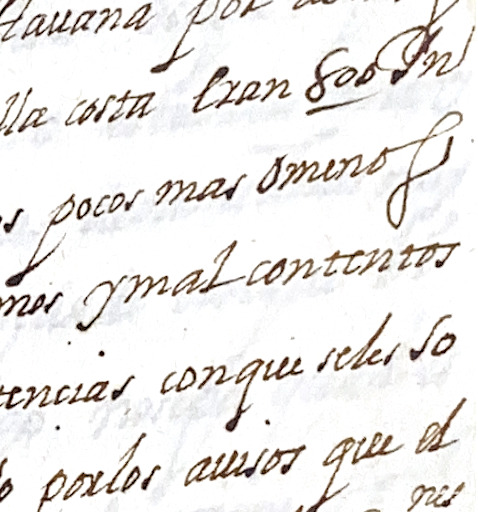 Hauana por
lla costa Eran 800 Yn
os pocos mas omenos
mos y mal contentos
tencias conque seles so
o porlos auisos que el
nes